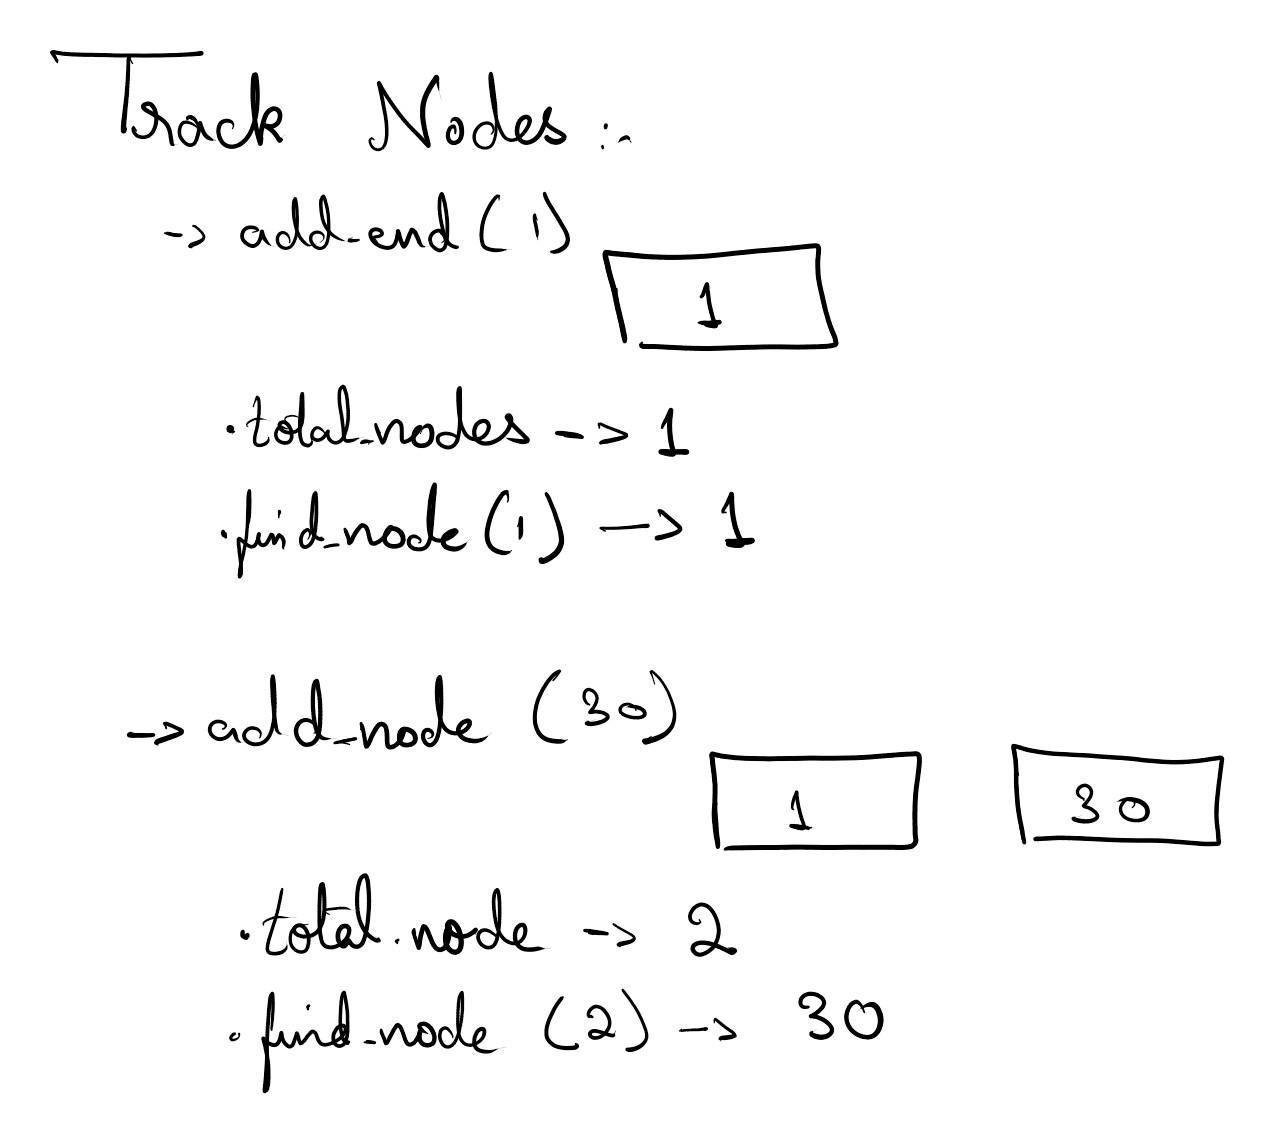 Track Nodes :-
-> add_end(1)
1
.total_nodes -> 1
.find_node(1) -> 1
-> add_node (30)
1 30
.total.node -> 2
.find_node (2) -> 30